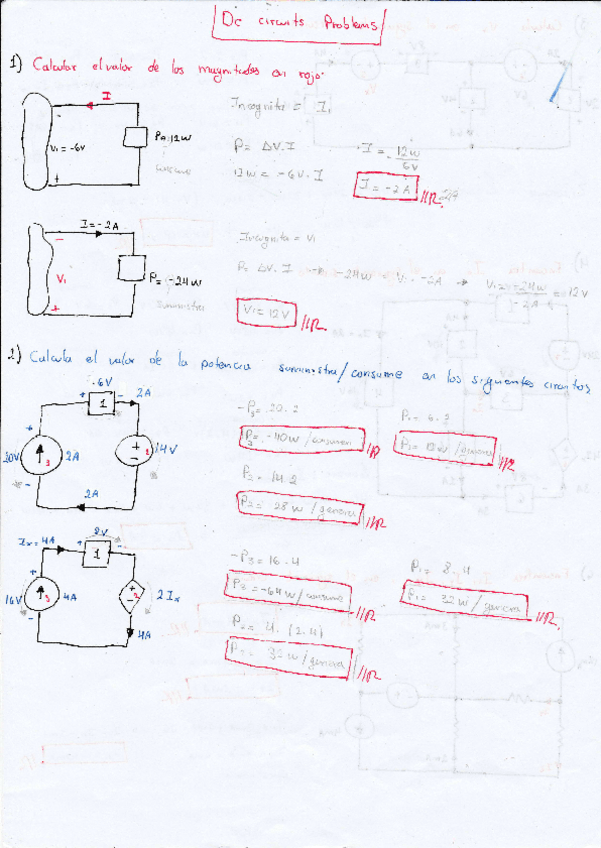 Dc circuits Problems
1) Calcular el valor de las magnitudes en rojo.
I
-
V₁=-6V
+
Pa=12w
Incognita = I₁
P= ΔV.I
12w = -6V.I
I = -12w/6V
I=-2A //R.
I=-2A
-
V₁
+
P=-24w
Suministra
Incognita = V₁
P= ΔV.I → -24w = V₁.-2A → V₁= -24w/-2A = 12V
V₁=12V //R
2) Calcula el valor de la potencia suministra/consume en los siguientes circuitos
6V
+ 1 - 2A
20V 3 2A
2 14V
2A
-P₃= 20.2
P₃=-40w/consumen //R
P₂= 14.2
P₂= 28w/genera //R
P₁= 6.2
//R
Ix=4A
8V
+ 1 -
16V 3 4A
2 2Ix
4A
-P₃=16.4
P₃=-64w/consume //R
P₂= 4.(2.4)
P₂= 32w/genera //R
P₁= 8.4
P₁= 32w/genera //R.